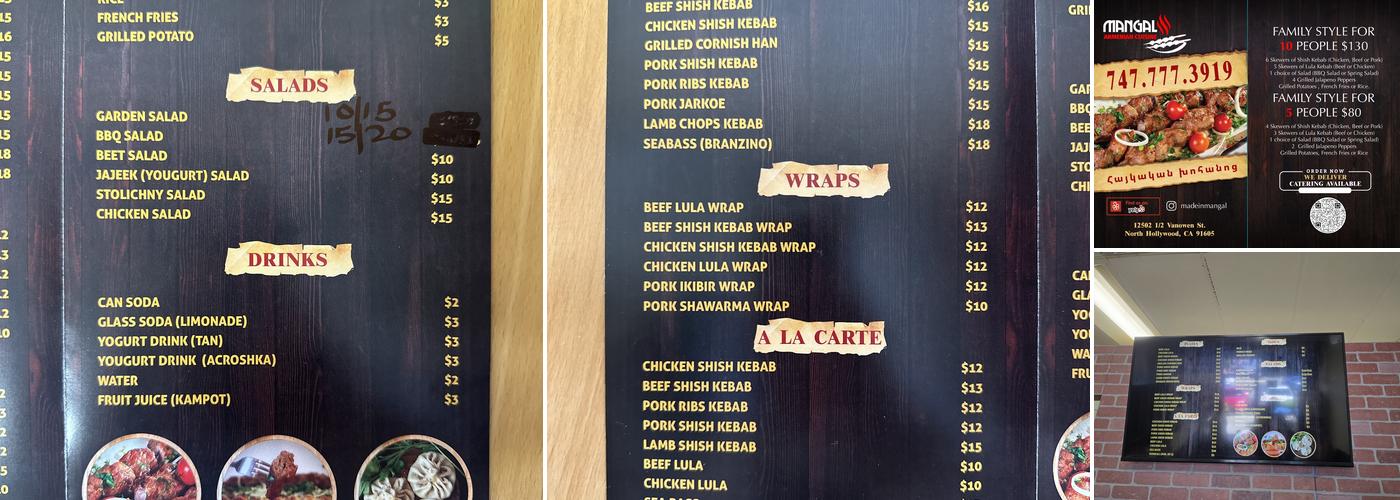 RICE $3
FRENCH FRIES $3
GRILLED POTATO $5
SALADS
10/15
15/20
GARDEN SALAD
BBQ SALAD
BEET SALAD $10
JAJEEK (YOUGURT) SALAD $10
STOLICHNY SALAD $15
CHICKEN SALAD $15
DRINKS
CAN SODA $2
GLASS SODA (LIMONADE) $3
YOGURT DRINK (TAN) $3
YOUGURT DRINK (ACROSHKA) $3
WATER $2
FRUIT JUICE (KAMPOT) $3
BEEF SHISH KEBAB $16
CHICKEN SHISH KEBAB $15
GRILLED CORNISH HAN $15
PORK SHISH KEBAB $15
PORK RIBS KEBAB $15
PORK JARKOE $15
LAMB CHOPS KEBAB $18
SEABASS (BRANZINO) $18
WRAPS
BEEF LULA WRAP $12
BEEF SHISH KEBAB WRAP $13
CHICKEN SHISH KEBAB WRAP $12
CHICKEN LULA WRAP $12
PORK IKIBIR WRAP $12
PORK SHAWARMA WRAP $10
A LA CARTE
CHICKEN SHISH KEBAB $12
BEEF SHISH KEBAB $13
PORK RIBS KEBAB $12
PORK SHISH KEBAB $12
LAMB SHISH KEBAB $15
BEEF LULA $10
CHICKEN LULA $10
MANGAL
ARMENIAN CUISINE
747.777.3919
Հայկական խոհանոց
Find us on
yelp
madeinmangal
12502 1/2 Vanowen St.
North Hollywood, CA 91605
FAMILY STYLE FOR
10 PEOPLE $130
6 Skewers of Shish Kebab (Chicken, Beef or Pork)
5 Skewers of Lula Kebab (Beef or Chicken)
1 choice of Salad (BBQ Salad or Spring Salad)
4 Grilled Jalapeno Peppers
Grilled Potatoes , French Fries or Rice.
FAMILY STYLE FOR
5 PEOPLE $80
4 Skewers of Shish Kebab (Chicken, Beef or Pork)
3 Skewers of Lula Kebab (Beef or Chicken)
1 choice of Salad (BBQ Salad or Spring Salad)
2 Grilled Jalapeno Peppers
Grilled Potatoes, French Fries or Rice
ORDER NOW
WE DELIVER
CATERING AVAILABLE
WRAPS